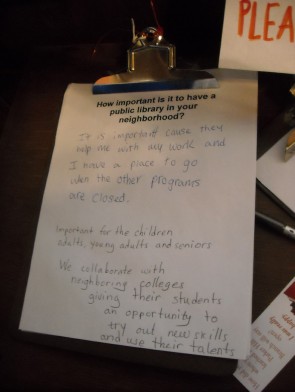 PLEA
How important is it to have a
public library in your
neighborhood?
It is important cause they
help me with my work and
I have a place to go
when the other programs
are closed.
Important for the children
adults, young adults and seniors
We collaborate with
neighboring colleges
giving their students
an opportunity to
try out new skills
and use their talents